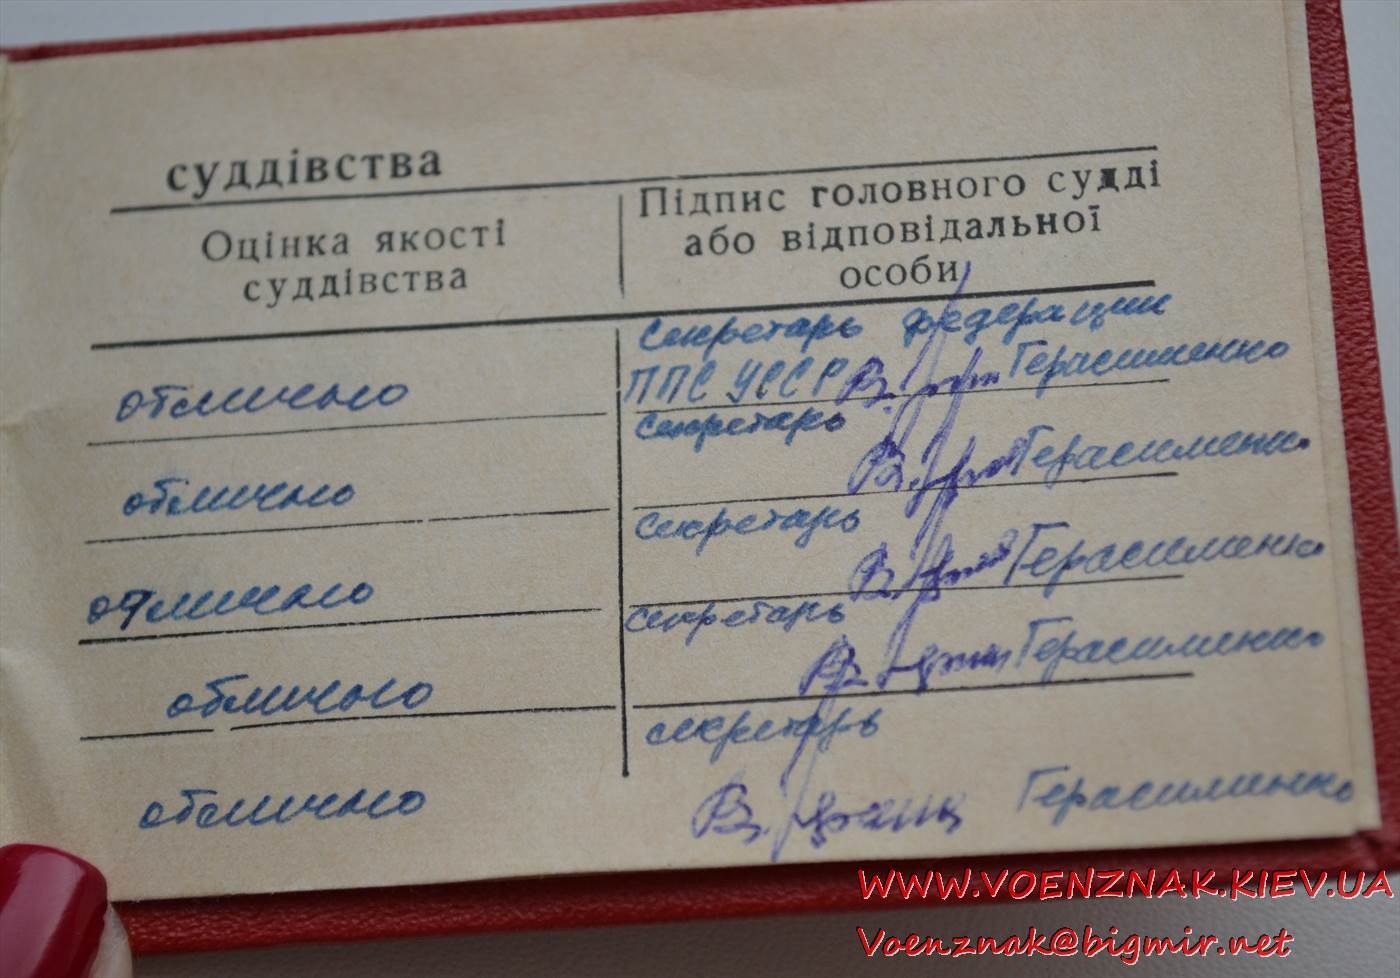 суддівства
Оцінка якості
суддівства
Підпис головного судді
або відповідальної
особи
секретарь федерации
отлично
ППС УССР Герасименко
секретарь
отлично
Герасименко
секретарь
отлично
Герасименко
секретарь
отлично
Герасименко
секретарь
отлично
Герасименко
WWW.VOENZNAK.KIEV.UA
Voenznak@bigmir.net